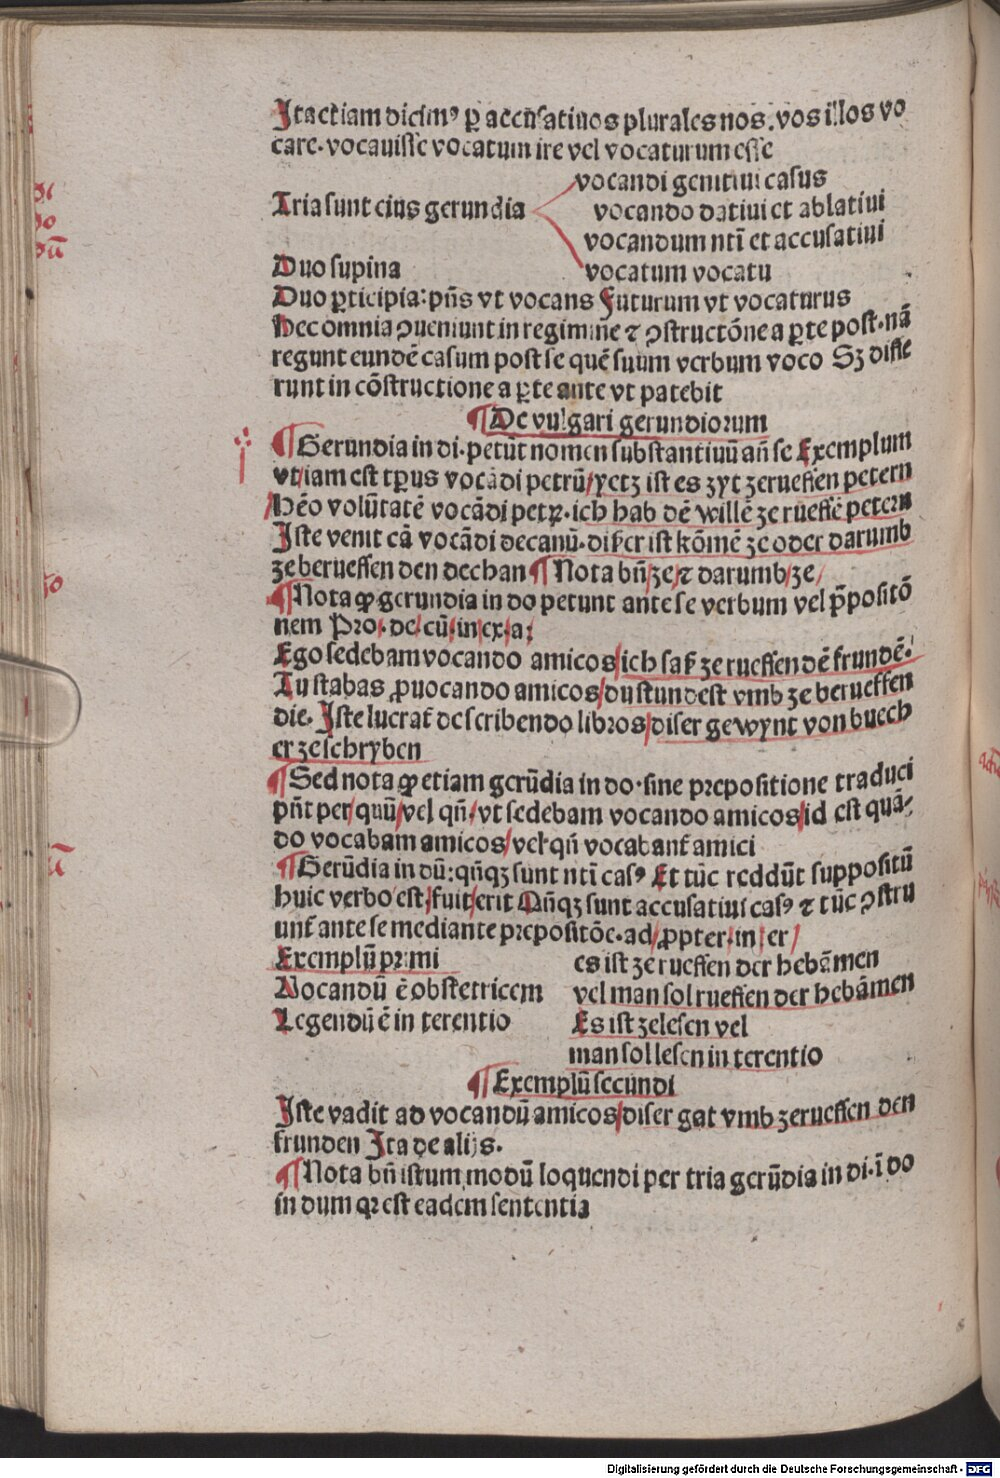 Ita etiam dicimꝰ ꝑ accusatiuos plurales nos. vos illos vo
care. vocauisse vocatum ire vel vocaturum esse
vocandi genitiui casus
Tria sunt eius gerundia vocando datiui et ablatiui
vocandum ntī et accusatiui
Duo supina vocatum vocatu
Duo ꝑticipia: pñs vt vocans Futurum vt vocaturus
Hec omnia ꝯueniunt in regimine ⁊ ꝯstructōne a ꝑte post. nā
regunt eundē casum post se quē suum verbum voco Sꝫ diffe
runt in cōstructione a ꝑte ante vt patebit
¶ De vulgari gerundiorum
¶ Gerundia in di. petūt nomen substantiuū añ se Exemplum
vt/iam est tꝑus vocādi petrū/yetz ist es zyt ze rueffen petern
Hēo volūtatē vocādi petꝝ. ich hab dē willē ze rueffē petern
Iste venit cā vocādi decanū. diser ist kōmē ze oder darumb
ze berueffen den dechan ¶ Nota bñ/ze/⁊ darumb/ze/
¶ Nota ꝙ gerundia in do petunt ante se verbum vel p̄positō
nem Pro/. de/ cū/ in/ ex/ a/
Ego sedebam vocando amicos/ich saß ze rueffen dē frundē.
Tu stabas ꝓuocando amicos/du stundest vmb ze berueffen
die. Iste lucrat̄ de scribendo libros/diser gewynt von buech
er ze schryben
¶ Sed nota ꝙ etiam gerūdia in do. sine prepositione traduci
pñt per/quū/vel qñ/vt sedebam vocando amicos/id est quā
do vocabam amicos/vel qñ vocabant̄ amici
¶ Gerūdia in dū: qñqꝫ sunt ntī casꝰ Et tūc reddūt suppositū
huic verbo est/fuit/erit Qñqꝫ sunt accusatiui casꝰ ⁊ tūc ꝯstru
unt̄ ante se mediante prepositōe. ad/ꝓpter/in/er/
Exemplū primi es ist ze rueffen der hebāmen
Vocandū ē obstetricem vel man sol rueffen der hebāmen
Legendū ē in terentio Es ist ze lesen vel
man sol lesen in terentio
¶ Exemplū secundi
Iste vadit ad vocandū amicos/diser gat vmb ze rueffen den
frunden Ita de alijs.
¶ Nota bñ istum modū loquendi per tria gerūdia in di. ī do
in dum qꝛ est eadem sententia
Digitalisierung gefördert durch die Deutsche Forschungsgemeinschaft - DFG